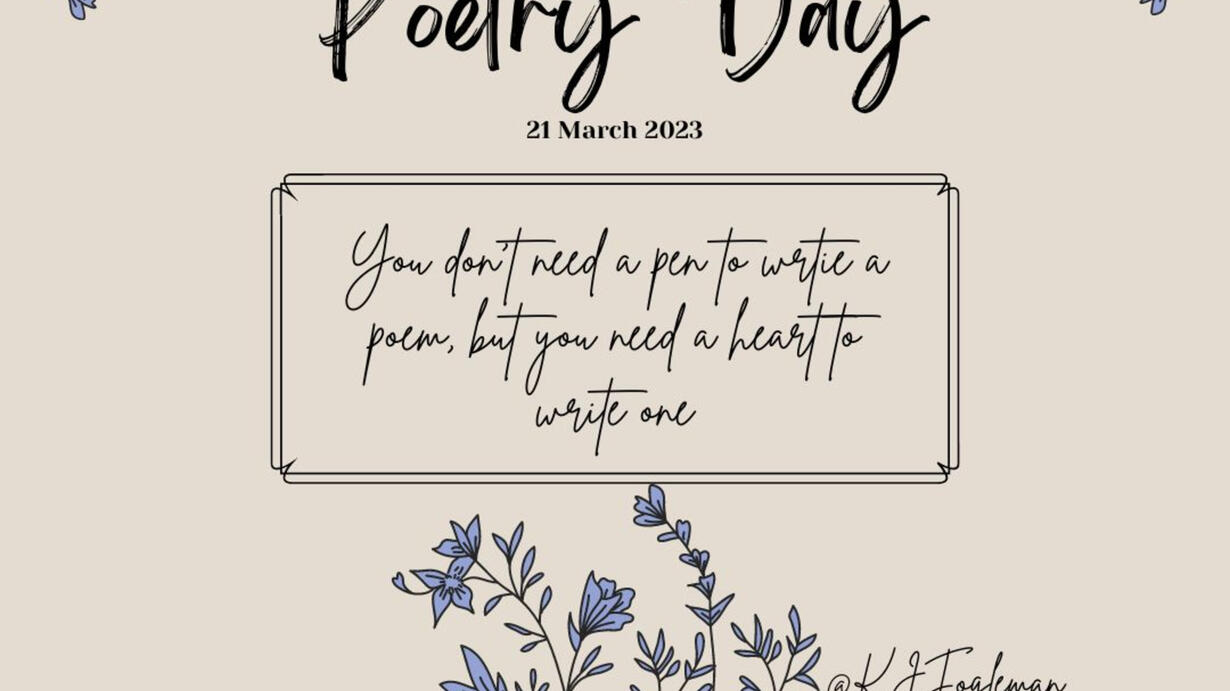 Poetry Day
21 March 2023
You don't need a pen to wrtie a
poem, but you need a heart to
write one
@KJFogleman